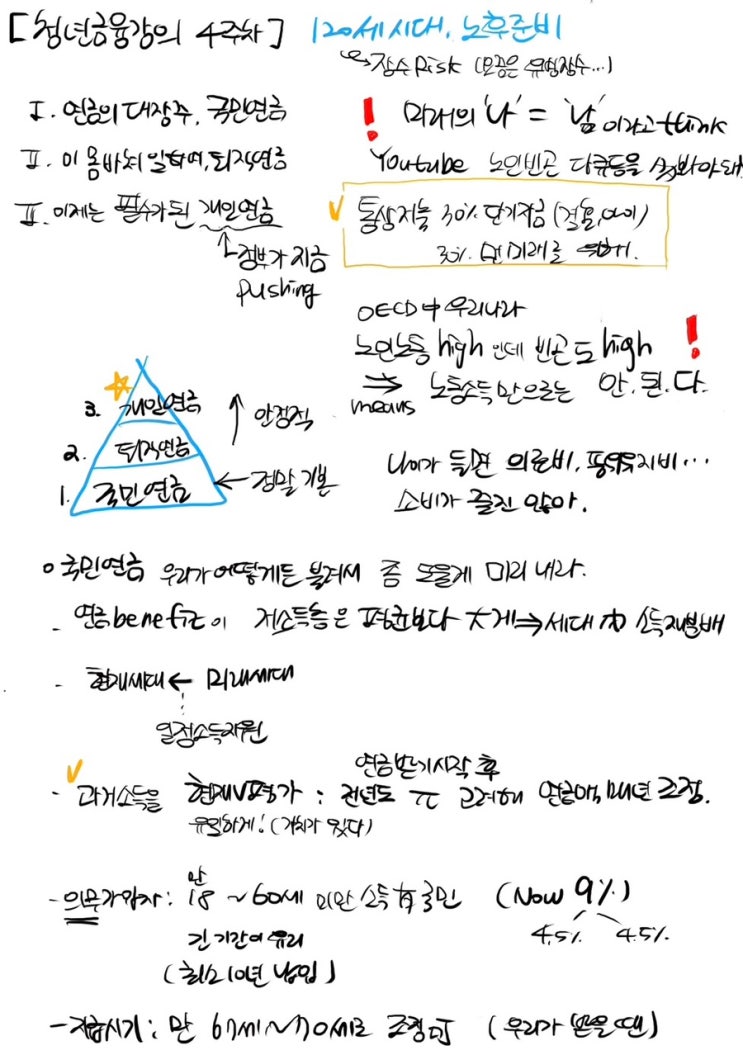 [청년금융강의 4주차] 120세시대, 노후준비
↳ 장수 Risk (요즘은 유병장수...)
I. 연금의 대장주, 국민연금
II. 이 몸바쳐 일하여, 퇴직연금
II. 이제는 필수가 된 개인연금
↑ 정부가 지금
pushing
! 미래의 '나' = '남'이라고 think
Youtube 노인빈곤 다큐등을 봐야돼
✓ 통상 저축 30% 단기자금 (결혼, 아이)
30% 먼미래를
OECD 中 우리나라
노인노동 high 인데 빈곤도 high !
⇒ 노동소득만으로는 안. 된. 다.
means
나이가 들면 의료비, 품위유지비...
소비가 줄진 않아.
3. 개인연금
2. 퇴직연금
1. 국민연금
↑ 안정적
← 정말 기본
o 국민연금 우리가 어떻게든 불려서 좀 도울게 미리 내라.
- 연금 benefit이 저소득층은 평균보다 大게 ⇒ 세대 內 소득재분배
- 현재세대 ← 미래세대
일정소득지원
✓
- 과거소득을 현재V평가 : 연금받기시작 후 전년도 π 고려해 연금액 매년 조정.
유일하게! (가치가 있다)
- 의무가입자 : 만 18 ~ 60세 미만 소득有국민 (Now 9%)
4.5% 4.5%
긴 기간이 유리
(최소 10년 납입)
- 지급시기 : 만 67세~70세로 조정可 (우리가 받을 땐)